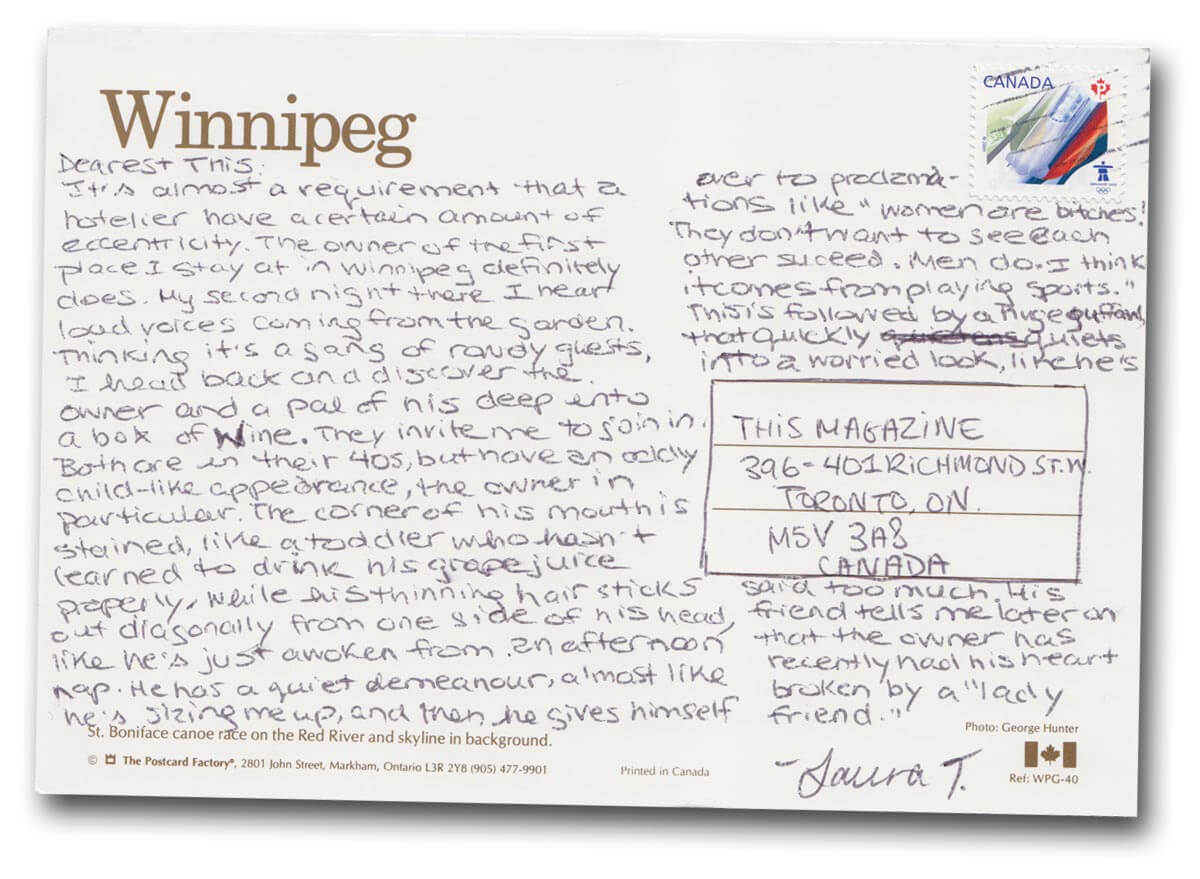 Winnipeg
Dearest This:
It's almost a requirement that a
hotelier have a certain amount of
eccentricity. The owner of the first
place I stay at in Winnipeg definitely
does. My second night there I hear
loud voices coming from the garden.
Thinking it's a gang of rowdy guests,
I head back and discover the
owner and a pal of his deep into
a box of wine. They invite me to join in.
Both are in their 40s, but have an oddly
child-like appearance, the owner in
particular. The corner of his mouth is
stained, like a toddler who hasn't
learned to drink his grape juice
properly, while his thinning hair sticks
out diagonally from one side of his head,
like he's just awoken from an afternoon
nap. He has a quiet demeanour, almost like
he's sizing me up, and then he gives himself
over to proclama-
tions like "women are bitches!
They don't want to see each
other suceed. Men do. I think
it comes from playing sports."
This is followed by a huge guffaw,
that quickly quiets
into a worried look, like he's
said too much. His
friend tells me later on
that the owner has
recently had his heart
broken by a "lady
friend."
-Laura T.
THIS MAGAZINE
396-401 RICHMOND ST. W.
TORONTO, ON.
M5V 3A8
CANADA
CANADA
P
St. Boniface canoe race on the Red River and skyline in background.
© The Postcard Factory®, 2801 John Street, Markham, Ontario L3R 2Y8 (905) 477-9901
Printed in Canada
Photo: George Hunter
Ref: WPG-40